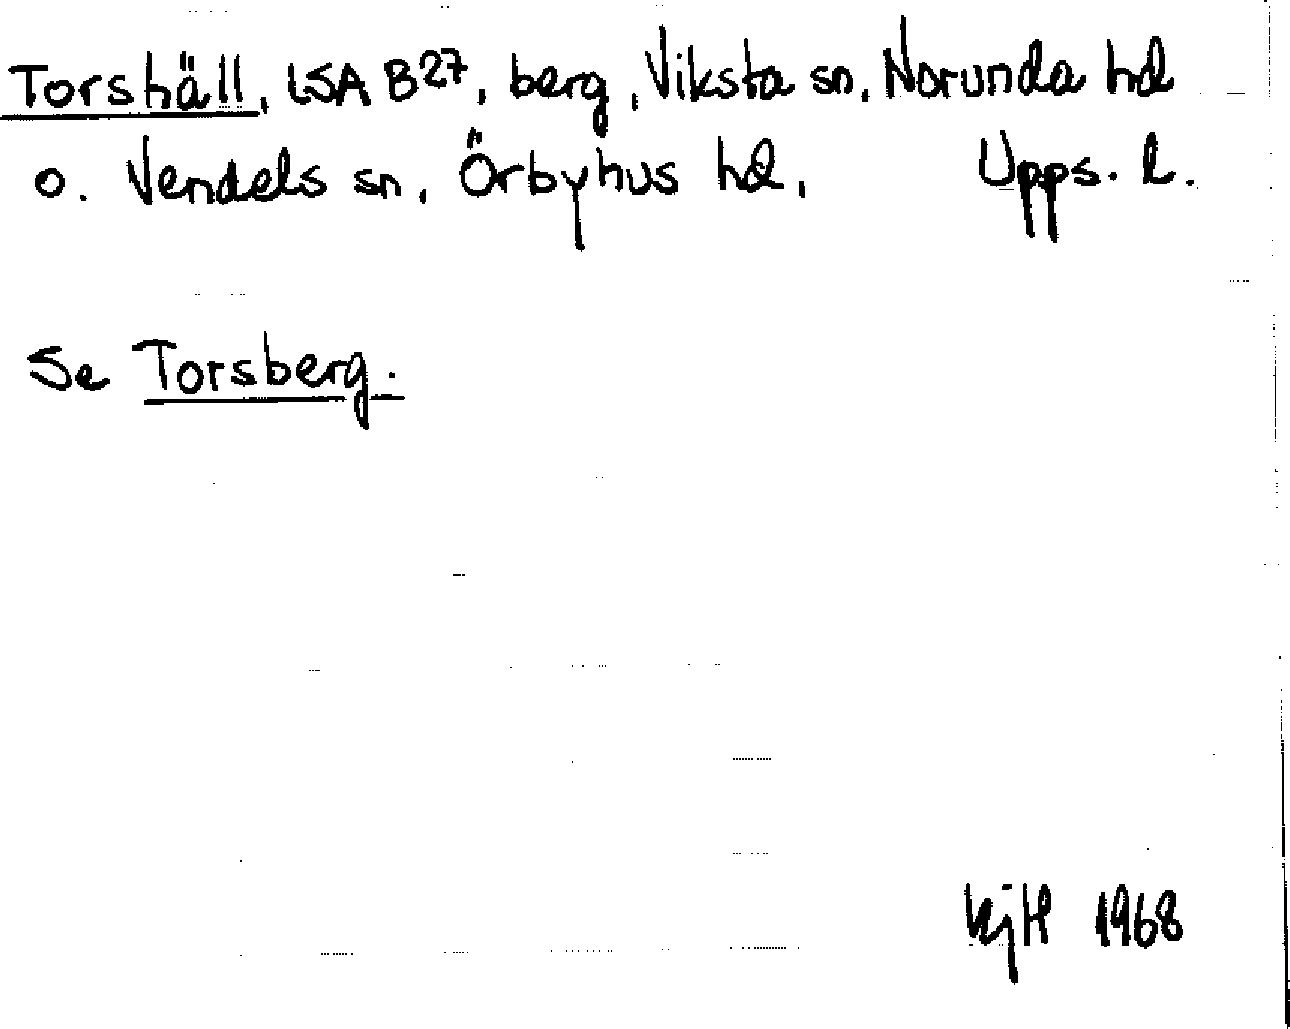 Torshäll, LSA B27, berg, Viksta sn, Norunda hd
o. Vendels sn, Örbyhus hd, Upps. l.
Se Torsberg.
KjH 1968